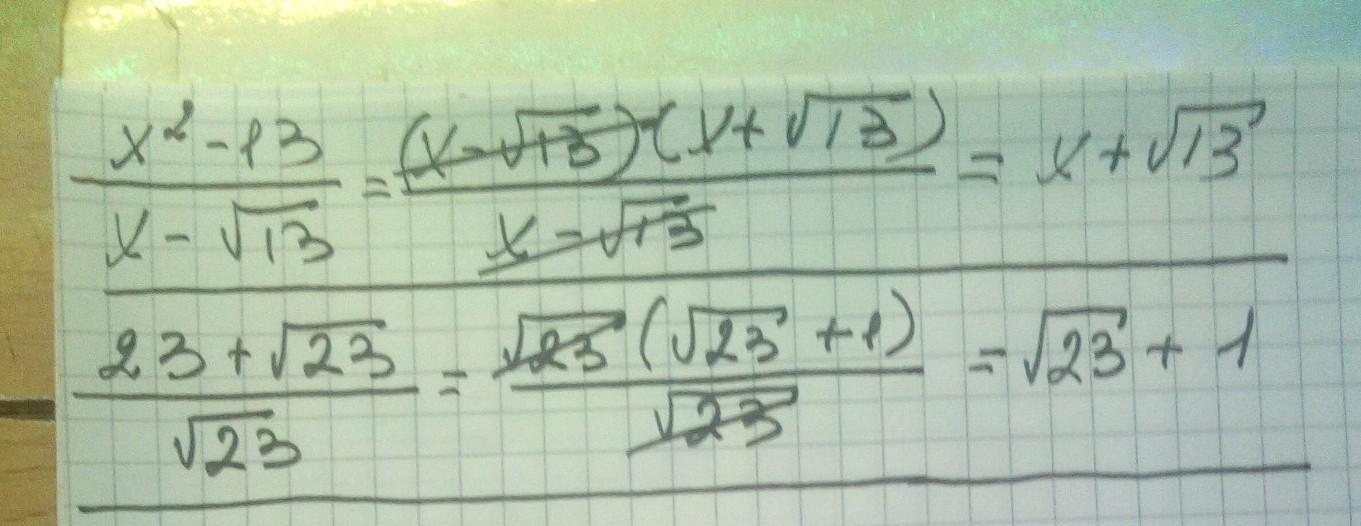 x² - 13 / x - √13 = (x - √13)(x + √13) / x - √13 = x + √13
23 + √23 / √23 = √23 (√23 + 1) / √23 = √23 + 1